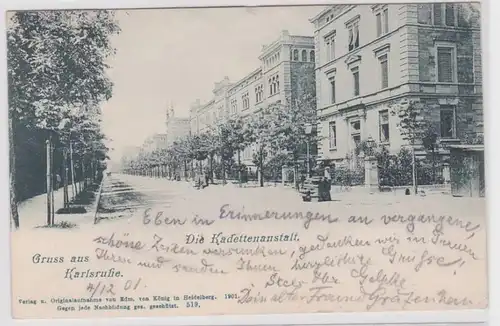 Die Kadettenanstalt.
Gruss aus
Karlsruhe.
4/12 01.
Eben in Erinnerungen an vergangene,
schöne Zeiten versunken, gedenken wir in Treuen
Ihrer und senden Ihnen herzlichste Grüsse,
Verlag u. Originalaufnahme von Edm. von König in Heidelberg. 1901.
Gegen jede Nachbildung ges. geschützt. 519.